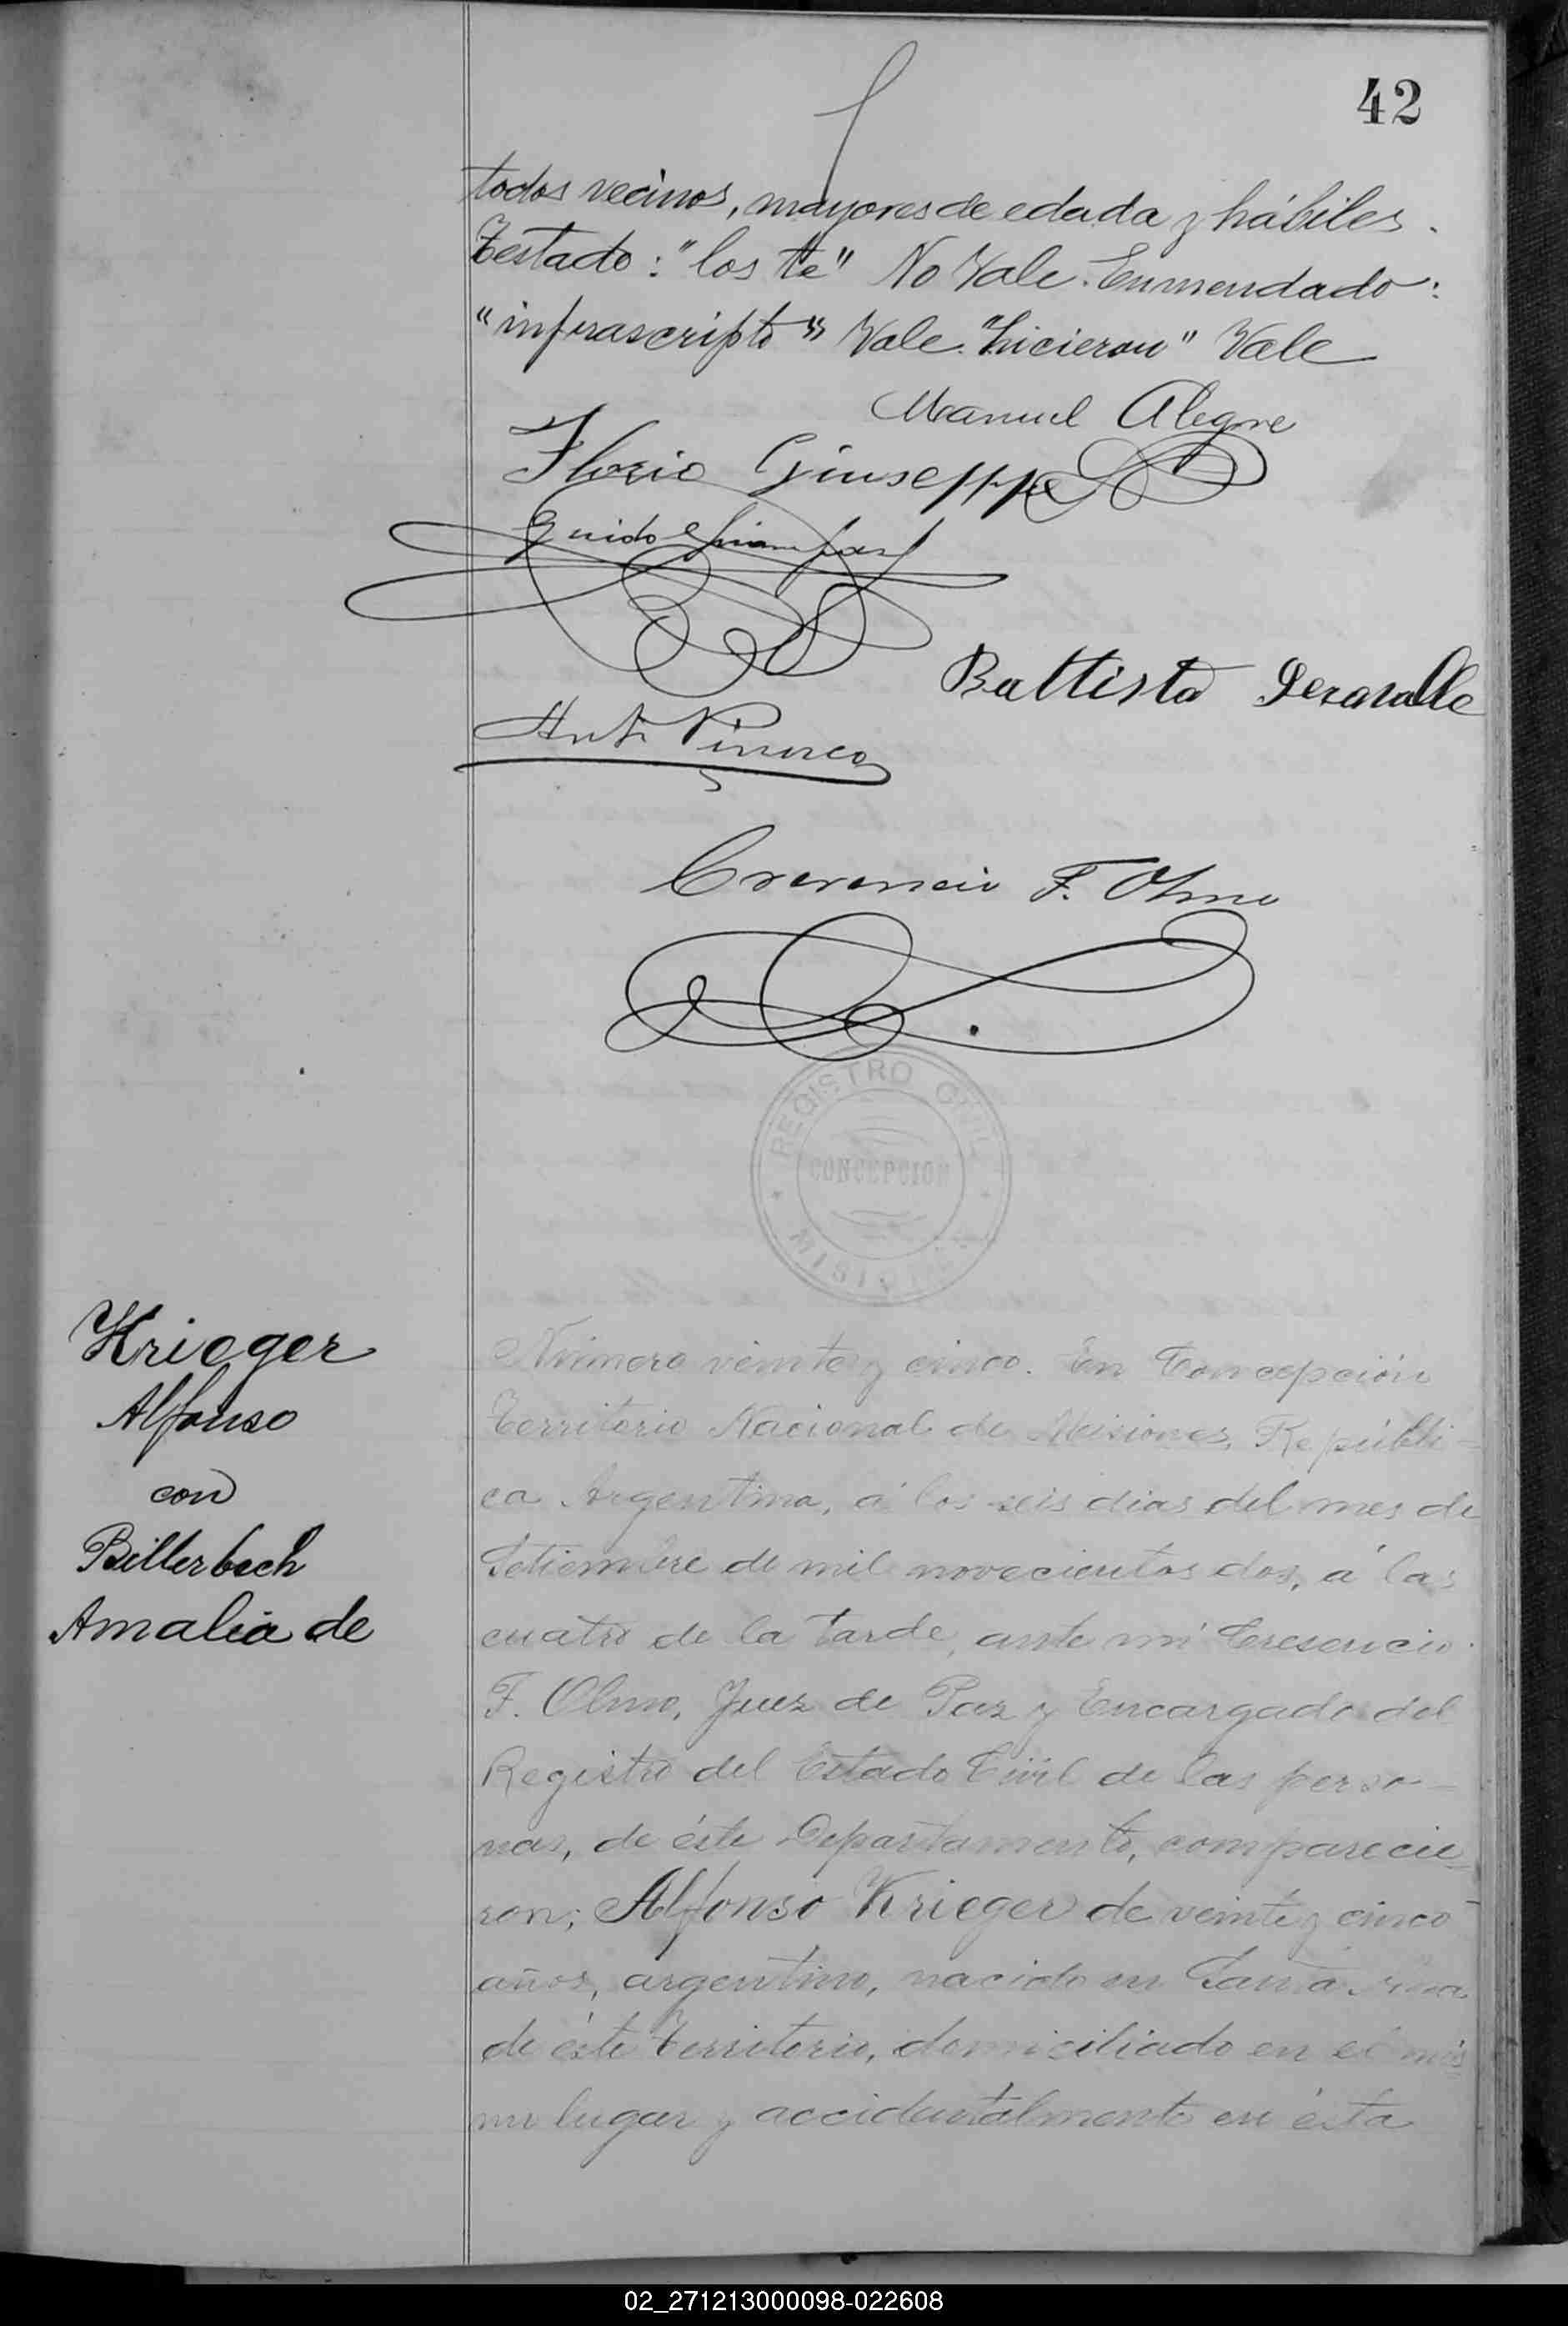 42
todos vecinos, mayores de edada y hábiles.
Testado: "los te" No Vale. Enmendado:
"infrascripto" Vale. "hicieron" Vale
Manuel Alegre
Florio Giuseppe
Guido
Battista
Ant.
Crecencio F. Olmo
REGISTRO CIVIL
CONCEPCION
MISIONES
Krieger
Alfonso
con
Billerbech
Amalia de
Número veinte y cinco. En Concepción
Territorio Nacional de Misiones, Repúbli-
ca Argentina, á los seis dias del mes de
Setiembre de mil novecientos dos, á las
cuatro de la tarde, ante mi Cresencio
F. Olmo, Juez de Paz y Encargado del
Registro del Estado Civil de las perso-
nas, de éste Departamento, comparecie-
ron; Alfonso Krieger de veinte y cinco
años, argentino, nacido en Santa Ana
de éste Territorio, domiciliado en el mis-
mo lugar y accidentalmente en ésta
02_271213000098-022608